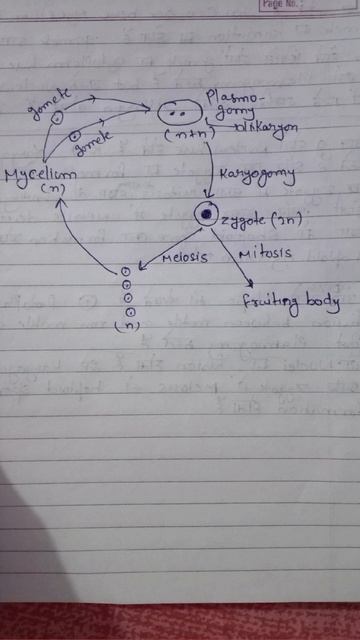 Page No.:
gamete
gamete
Plasmo-
gamy
(n+n)
Dikaryon
Mycelium
(n)
Karyogamy
Zygote (2n)
Meiosis
Mitosis
(n)
Fruiting body